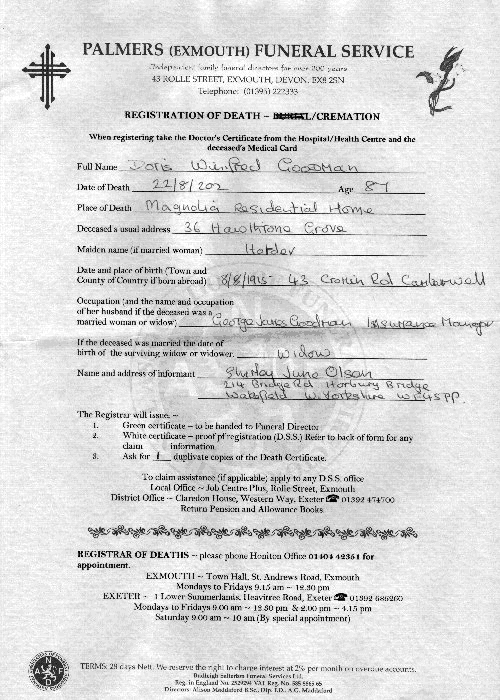 PALMERS (EXMOUTH) FUNERAL SERVICE
Independent family funeral directors for over 200 years
43 ROLLE STREET, EXMOUTH, DEVON. EX8 2SN
Telephone: (01395) 222333
REGISTRATION OF DEATH ~ BURIAL/CREMATION
When registering take the Doctor's Certificate from the Hospital/Health Centre and the
deceased's Medical Card
Full Name Doris Winifred Goodman
Date of Death 22/8/202 Age 87
Place of Death Magnolia Residential Home
Deceased's usual address 36 Hawthorne Grove
Maiden name (if married woman)
Date and place of birth (Town and
County of Country if born abroad) 8/8/1915 43 Rd Camberwell
Occupation (and the name and occupation
of her husband if the deceased was a
married woman or widow) George James Goodman Insurance Manager
If the deceased was married the date of
birth of the surviving widow or widower. Widow
Name and address of informant Shirley June Olson
214 Bridge Rd Horbury Bridge
Wakefield W. Yorkshire WF4 5PP.
The Registrar will issue: ~
1. Green certificate ~ to be handed to Funeral Director
2. White certificate ~ proof pf registration (D.S.S.) Refer to back of form for any
claim information
3. Ask for 1 duplivate copies of the Death Certificate.
To claim assistance (if applicable) apply to any D.S.S. office
Local Office ~ Job Centre Plus, Rolle Street, Exmouth
District Office ~ Claredon House, Western Way, Exeter ☎ 01392 474700
Return Pension and Allowance Books
REGISTRAR OF DEATHS ~ please phone Honiton Office 01404 42351 for
appointment.
EXMOUTH ~ Town Hall, St. Andrews Road, Exmouth
Mondays to Fridays 9.15 am ~ 12.30 pm
EXETER ~ 1 Lower Summerlands, Heavitree Road, Exeter ☎ 01392 686260
Mondays to Fridays 9.00 am ~ 12.30 pm & 2.00 pm ~ 4.15 pm
Saturday 9.00 am ~ 10 am (By special appointment)
TERMS: 28 days Nett. We reserve the right to charge interest at 2% per month on overdue accounts.
Budleigh Salterton Funeral Services Ltd.
Reg. in England No. 2529294 VAT Reg. No. 585 8865 65
Directors: Alison Maddaford B.Sc., Dip. F.D., A.G. Maddaford